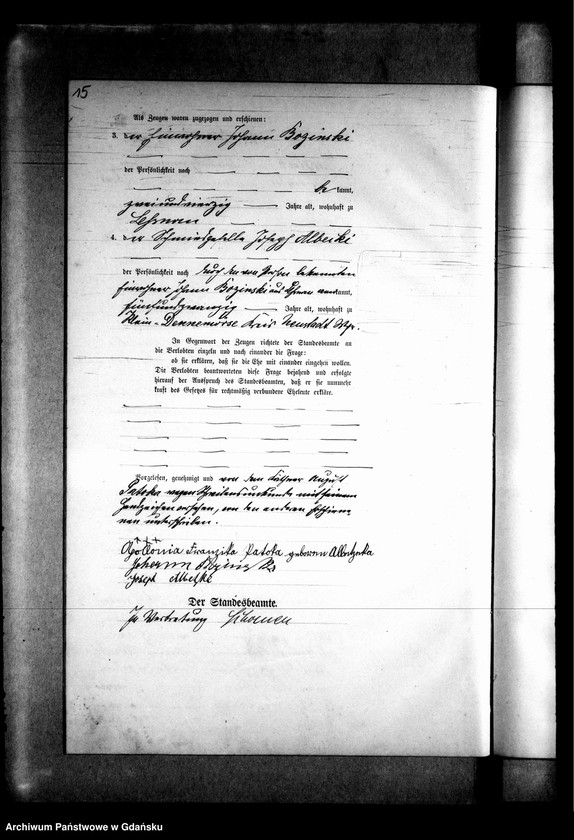 15
Als Zeugen waren zugezogen und erschienen:
3. der Einwohner Johann Bozinski
der Persönlichkeit nach
be kannt,
zweiundvierzig Jahre alt, wohnhaft zu
Lehnau
4. der Schmiedgeselle Joseph Albeiki
der Persönlichkeit nach durch den von Person bekannten
Einwohner Johann Bozinski aus anerkannt,
fünfundzwanzig Jahre alt, wohnhaft zu
Klein-Dennemörse Kreis Neustadt Wpr.
In Gegenwart der Zeugen richtete der Standesbeamte an
die Verlobten einzeln und nach einander die Frage:
ob sie erklären, daß sie die Ehe mit einander eingehen wollen.
Die Verlobten beantworteten diese Frage bejahend und erfolgte
hierauf der Ausspruch des Standesbeamten, daß er sie nunmehr
kraft des Gesetzes für rechtmäßig verbundene Eheleute erkläre.
Vorgelesen, genehmigt und von dem August
Patoka wegen Schreibensunkunde mit seinem
Handzeichen versehen, von den anderen Erschiene-
nen unterschrieben.
+++
Apollonia Franziska Patoka geboren
Johann
Joseph
Der Standesbeamte.
In Vertretung
Archiwum Państwowe w Gdańsku